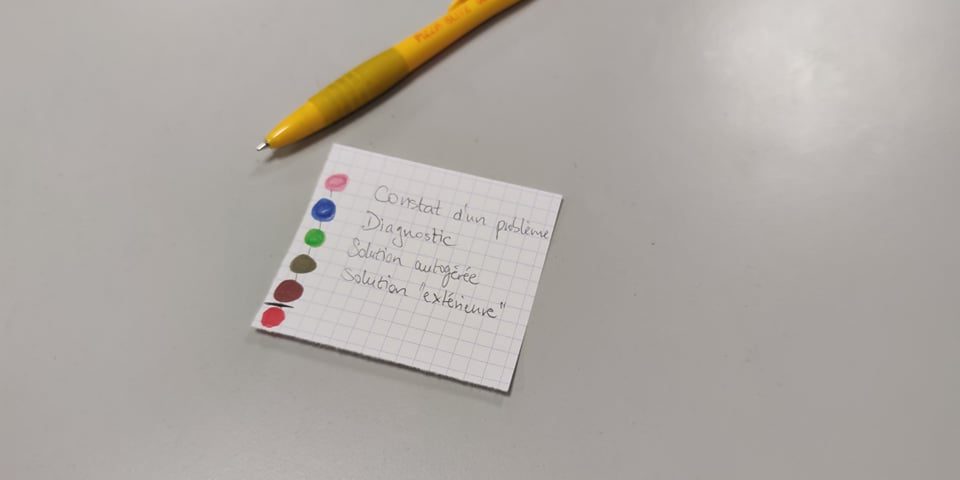 PIZZA BLITZ
Constat d'un problème
Diagnostic
Solution autogérée
Solution "extérieure"